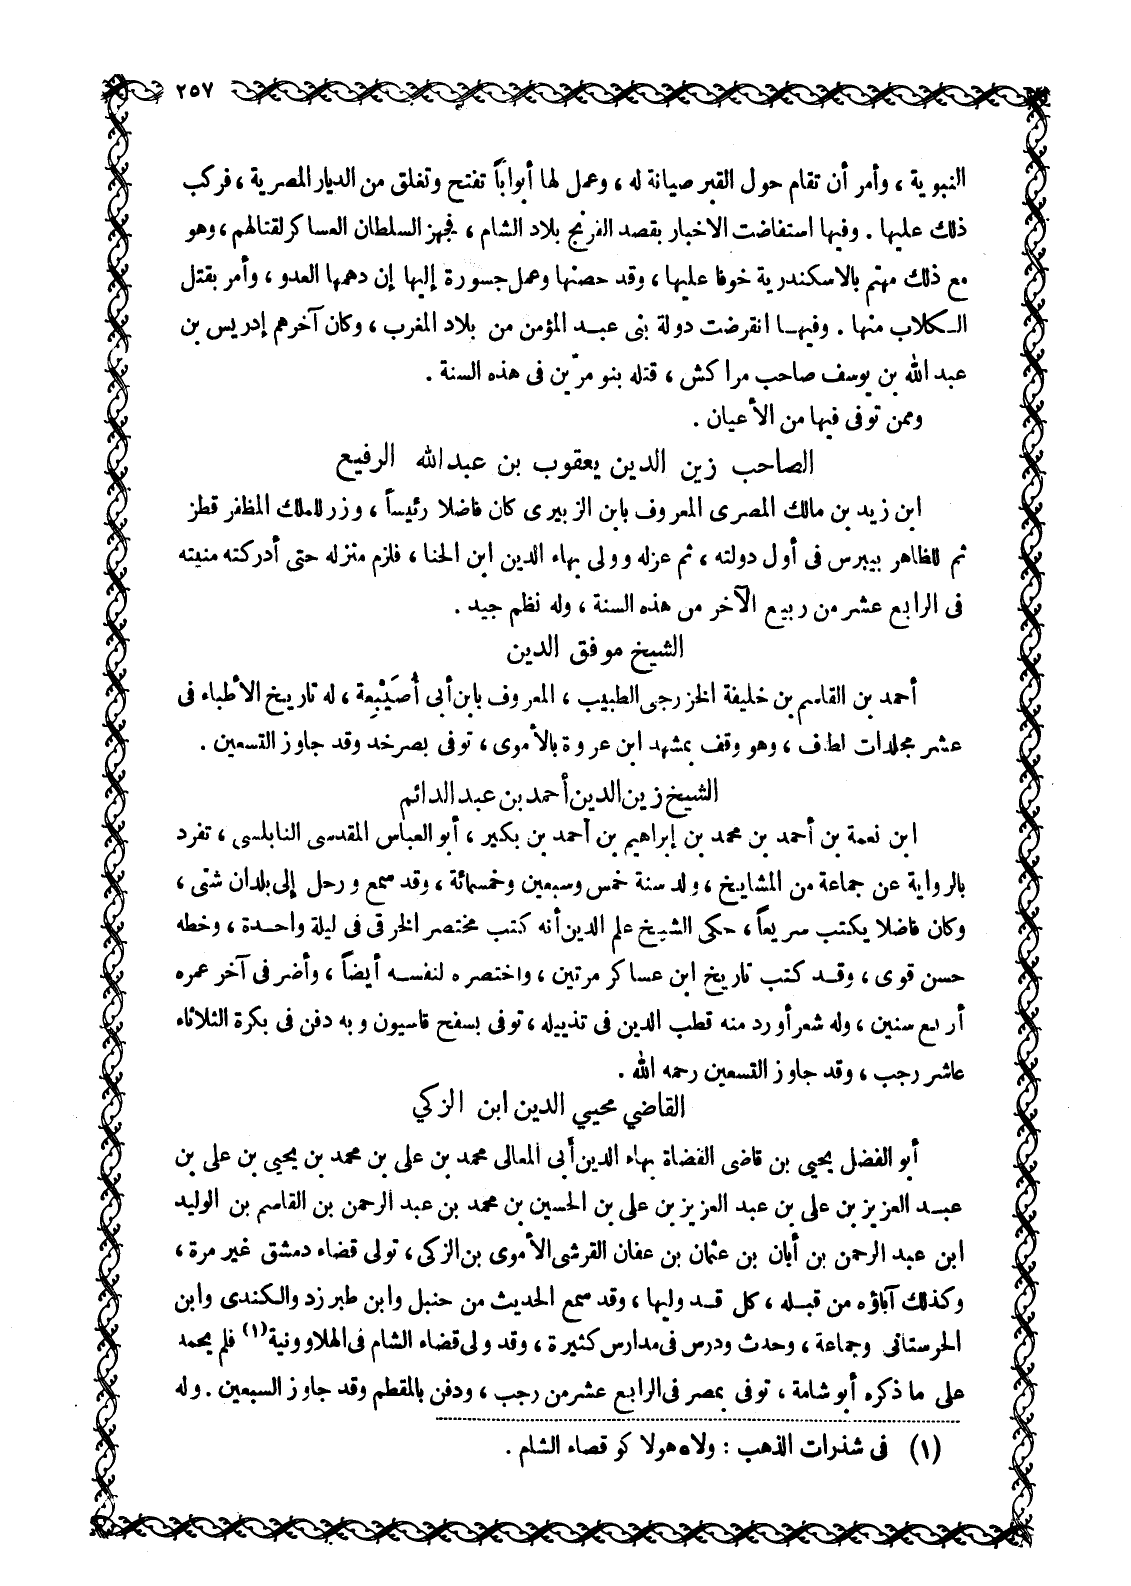 ٢٥٧
النبوية ، وأمر أن تقام حول القبر صيانة له ، وعمل لها أبواباً تفتح وتغلق من الديار المصرية ، فركب
ذلك عليها . وفيها استفاضت الاخبار بقصد الفرنج بلاد الشام ، فجهز السلطان العساكر لقتالهم ، وهو
مع ذلك مهتم بالاسكندرية خوفا عليها ، وقد حصنها وعمل جسورة إليها إن دهمها العدو ، وأمر بقتل
الـكلاب منها . وفيهـا انقرضت دولة بنى عبـد المؤمن من بلاد المغرب ، وكان آخرهم إدريس بن
عبد الله بن يوسف صاحب مراكش ، قتله بنو مرّين فى هذه السنة .
وممن توفى فيها من الأعيان .
الصاحب زين الدين يعقوب بن عبدالله الرفيع
ابن زيد بن مالك المصرى المعروف بابن الزبيرى كان فاضلا رئيساً ، وزر للملك المظفر قطز
ثم للظاهر بيبرس فى أول دولته ، ثم عزله وولى بهاء الدين ابن الحنا ، فلزم منزله حتى أدركته منيته
فى الرابع عشر من ربيع الآخر من هذه السنة ، وله نظم جيد .
الشيخ موفق الدين
أحمد بن القاسم بن خليفة الخزرجى الطبيب ، المعروف بابن أبى أُصَيْبِعة ، له تاريخ الأطباء فى
عشر مجلدات لطاف ، وهو وقف بمشهد ابن عروة بالأموى ، توفى بصرخد وقد جاوز التسعين .
الشيخ زين الدين أحمد بن عبد الدائم
ابن نعمة بن أحمد بن محمد بن إبراهيم بن أحمد بن بكير ، أبو العباس المقدسى النابلسى ، تفرد
بالرواية عن جماعة من المشايخ ، ولد سنة خمس وسبعين وخمسمائة ، وقد سمع ورحل إلى بلدان شتى ،
وكان فاضلا يكتب سريعاً ، حكى الشيخ علم الدين أنه كتب مختصر الخرقى فى ليلة واحـدة ، وخطه
حسن قوى ، وقـد كتب تاريخ ابن عساكر مرتين ، واختصره لنفسـه أيضاً ، وأضر فى آخر عمره
أربع سنين ، وله شعر أورد منه قطب الدين فى تذييله ، توفى بسفح قاسيون وبه دفن فى بكرة الثلاثاء
عاشر رجب ، وقد جاوز التسعين رحمه الله .
القاضي محيي الدين ابن الزكي
أبو الفضل يحيى بن قاضى القضاة بهاء الدين أبى المعالى محمد بن على بن محمد بن يحيى بن على بن
عبـد العزيز بن على بن عبد العزيز بن على بن الحسين بن محمد بن عبد الرحمن بن القاسم بن الوليد
ابن عبد الرحمن بن أبان بن عثمان بن عفان القرشى الأموى بن الزكى ، تولى قضاء دمشق غير مرة ،
وكذلك آباؤه من قبـله ، كل قـد وليها ، وقد سمع الحديث من حنبل وابن طبرزد والـكندى وابن
الحرستانى وجماعة ، وحدث ودرس فى مدارس كثيرة ، وقد ولى قضاء الشام فى الهلاوونية (١) فلم يحمد
على ما ذكره أبو شامة ، توفى بمصر فى الرابع عشر من رجب ، ودفن بالمقطم وقد جاوز السبعين . وله
(١) فى شذرات الذهب : ولاه هولاكو قضاء الشام .